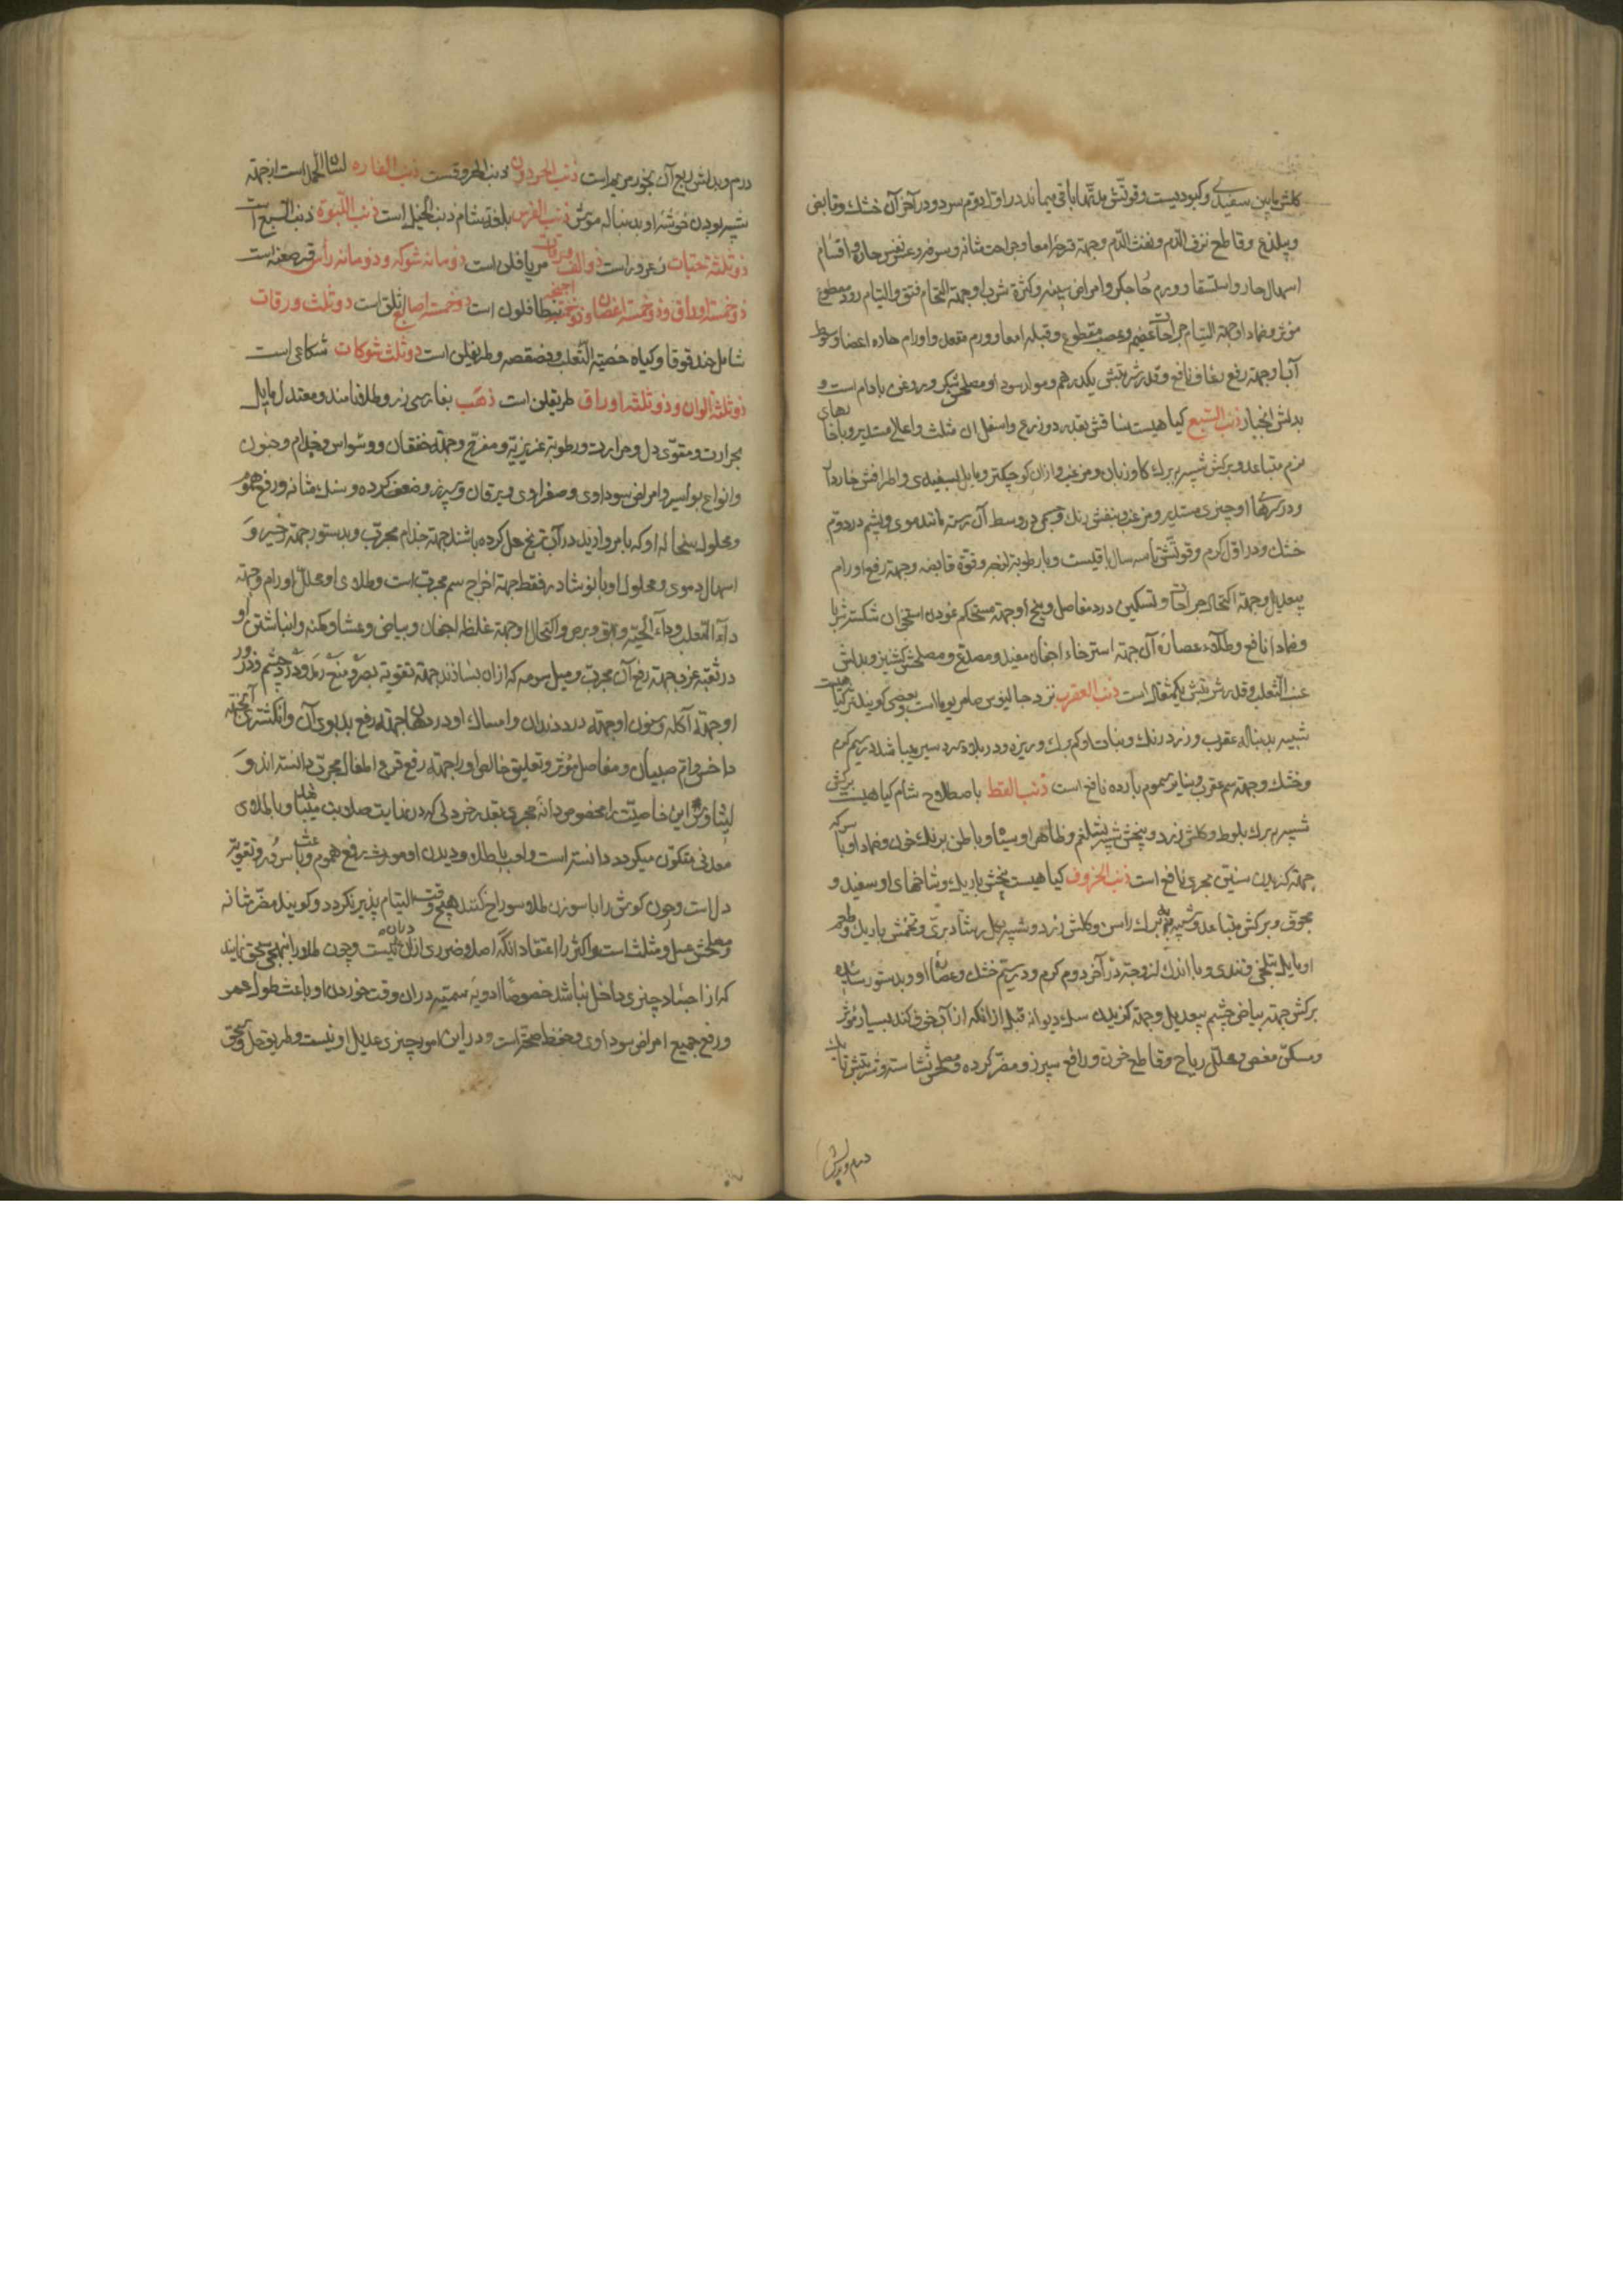 کلش مابین سفیدی و کبودیست و قوتش مدتها باقی میماند در اول دوم سرد و در آخر آن خشک و قابض
و بیلذع و قاطع نزف الدم و نفث الدم و جهة قرحه امعا و جراحت مثانه و سرفه و عسر نفس حاره و اقسام
اسهال حار و استسقا و ورم حار جکر و امراض سینه و کثرة شربا و جهة التحام فتق و التیام روده مقطوع
مؤثر و ضماد او جهة التیام جراحات عظیم و عصب مقطوع و قیله امعا و ورم مقعد و اورام حاره اعضا و سقوط
آباد جهة رفع رعاف نافع و قدر شربتش یکدرهم و مولد سودا و مصلحش شکر و روغن بادام است و
بدلش انجبار ذنب السبع کیاهیست ساقش بقدر دو ذرع و اسفل آن مثلث و اعلای مستدیر و با خارهای
نرم متباعد و برکش شبیه ببرک کاوزبان و مزغب و ازان کوچکتر و مایل بسفیدی و اطرافش خاردار
و در سرهای او چیزی مستدیر و مزغب و بنفش رنک و چیزی در وسط آن رسته مانند موی و پشم در دوم
خشک و در اول کرم و قوتش تا سه سال باقیست و با رطوبة لزجه و قوة قابضه و جهة رفع اورام
بیعدیل و جهة اکتحال جراحات و تسکین درد مفاصل و بیخ او جهة مستحکم نمودن استخوان شکسته شربا
و ضمادا نافع و طلاء عصاره آن جهة استرخاء اجفان مفید و مصدع و مصلحش کشنیز و بدلش
عنب الثعلب و قدر شربتش یکمثقال است ذنب العقرب نزد جالینوس صامریوما است و بعضی کویند کیاهیست
شبیه بدنباله عقرب و زرد رنک و نبات او کم برک و ریزه و در بلاد سردسیر میباشد در سیم کرم
و خشک و جهة سم عقرب و سایر سموم بارده نافع است ذنب القط باصطلاح شام کیاهیست برکش
شبیه ببرک بلوط و کلش زرد و بیخش شبیه بشلغم و ظاهر او سیاه و باطن برنک خون و ضماد او با سرکه
جهة کزیدن سنین بحری نافع است ذنب الخروف کیاهیست بیخش باریک و شاخهای او سفید و
مجوف و برکش متباعد و شبیه ببرک راس و کلش زرد و شبیه بکل رشاد بری و تخمش باریک و طعم
او مایل بتلخی و تندی و با اندک لزوجة در آخر دوم کرم و در سیم خشک و عصاره او و بدستور ساییده
برکش جهة بیاض چشم بیعدیل و جهة کزیدن سک دیوانه قبل از انکه از آب خوف کند بسیار مؤثر
و مسکن مغص و محلل ریاح و قاطع خون و رافع سپرز و مضر کرده و مصلحش نشاسته و شربتش تا یک
درم و بدلش
درم و بدلش ربع آن بخور مریم است ذنب الحردون ذنب الخروفست ذنب الفاره لسان الحمل است از جهة
شبیه بودن خوشه او بدنباله موش ذنب الفرس بلغة شام ذنب الخیل است ذنب اللبوة ذنب السبع است
ذو ثلثة حبات زعرور است ذو الف ورقات مریافلن است ذو مائة شوکه و ذو مائة رأس قرصعنه است
ذو خمسة اوراق و ذو خمسة اغصان و ذو خمسة اجنحه بنطافلون است ذو خمسة اصابع تلق است ذو ثلث ورقات
شامل حندقوقا و کیاه خصیة الثعلب و فصفصه و طریفلن است ذو ثلث شوکات شکاعی است
ذو ثلثة الوان و ذو ثلثة اوراق طریفلن است ذهب بفارسی زر و طلا نامند و معتدل مایل
بحرارت و مقوی دل و حرارت و رطوبة عزیزیه و مفرح و جهة خفقان و وسواس و جذام و جنون
و انواع بواسیر و امراض سوداوی و صفراوی و یرقان و سپرز و ضعف کرده و سنک مثانه و رفع هموم
و محلول سحاله او که با مروارید در آب ترنج حل کرده باشند جهة جذام مجرب و بدستور جهة زحیر و
اسهال دموی و محلول او با نوشادر فقط جهة اخراج سم مجرب است و طلای او محلل اورام و جهة
داء الثعلب و داء الحیه و بهق و برص و اکتحال او جهة غلظ اجفان و بیاض و عشا و کمنه و انباشتن او
در ثقبه غرب جهة رفع آن مجرب و میل سرمه که ازان بسازند جهة تقویة بصر و منع رمد و درد چشم و ذرور
او جهة آکله و سنون او جهة درد دندان و امساک او در دهان جهة رفع بدبوی آن و انکشتری آن جهة
داخس و ام صبیان و مفاصل مؤثر و تعلیق خالص او را جهة رفع فزع اطفال مجرب دانسته اند و
این خاصیت را مخصوص دانه حجری بقدر خردلی که در نهایت صلابت میباشد و با طلای
معدنی متکون میکردد دانسته است و لعب با طلا و دیدن او مورث رفع هموم و باعث سرور و تقویة
دل است و چون کوش را با سوزن طلا سوراخ کنند هیچ وقت التیام پذیر نکردد و کویند مضر مثانه
و مصلحش عسل و مثلث است و اکثر را اعتقاد آنکه اصلا ضرری ازان نیست و چون طلا را بنهجی سحق نمایند
که از اجساد چیزی داخل نباشد خصوصا ادویه سمیه دران وقت خوردن او باعث طول عمر
و رفع جمیع امراض سوداوی و حفظ صحة است و در این امور چیزی عدیل او نیست و طریق حل و سحق